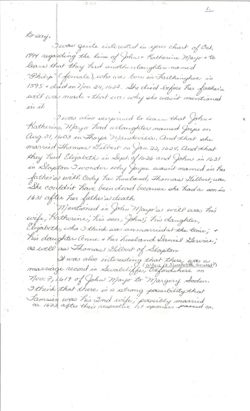 I was quite interested in your chart of Oct.
1994 regarding the line of John & Katherine Mayo & to
learn that they had another daughter named
"Philip" (female), who was born in
1595 & died on Nov 24, 1622. She died before her father's
will was made & that is why she wasn't mentioned
in it.
I was also surprised to learn that John &
Katherine Mayo had a daughter named Joyce on
Aug. 21, 1603 in Thorpe Mandeville. And that she
married Thomas Gilbert on Jan 22, 1624. And that
they had Elizabeth in Sept. of 1626 and John in 1631
in I wonder why Joyce wasn't named in her
father's will only her husband, Thomas Gilbert, was.
She couldn't have been dead because she had a son in
1631 after her father's death.
Mentioned in John Mayo's will was his
wife, Katherine; his son, John; his daughter,
Elizabeth, who I think was unmarried at the time; &
his daughter Anne & her husband Daniel
as well as Thomas Gilbert of
It was also interesting that there was a
marriage record in Oxfordshire on
Nov. 7, 1619 of John Mayo to Margery
I think that there is a strong possibility that
was his 2nd wife, possibly married
in after their respective 1st spouses passed on.